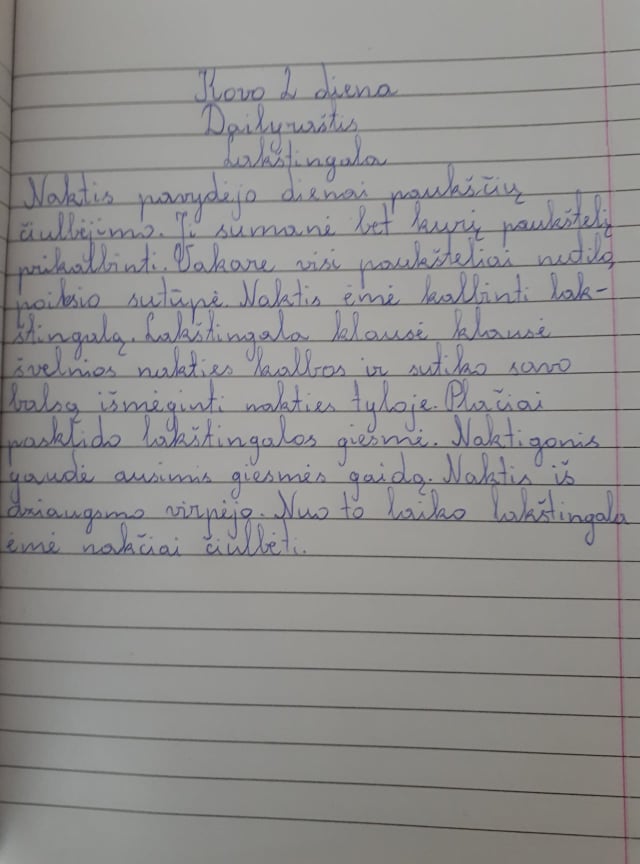 Kovo 2 diena
Dailyraštis
Lakštingala
Naktis pavydėjo dienai paukščių
čiulbėjimo. Ji sumanė bet kurį paukštelį
prikalbinti. Vakare visi paukšteliai nutilo,
poilsio sutūpė. Naktis ėmė kalbinti lak-
štingalą. Lakštingala klausė klausė
švelnios nakties kalbos ir sutiko savo
balsą išmėginti nakties tyloje. Plačiai
pasklido lakštingalos giesmė. Naktigonis
gaudė ausimis giesmės gaidą. Naktis iš
džiaugsmo virpėjo. Nuo to laiko lakštingala
ėmė nakčiai čiulbėti.